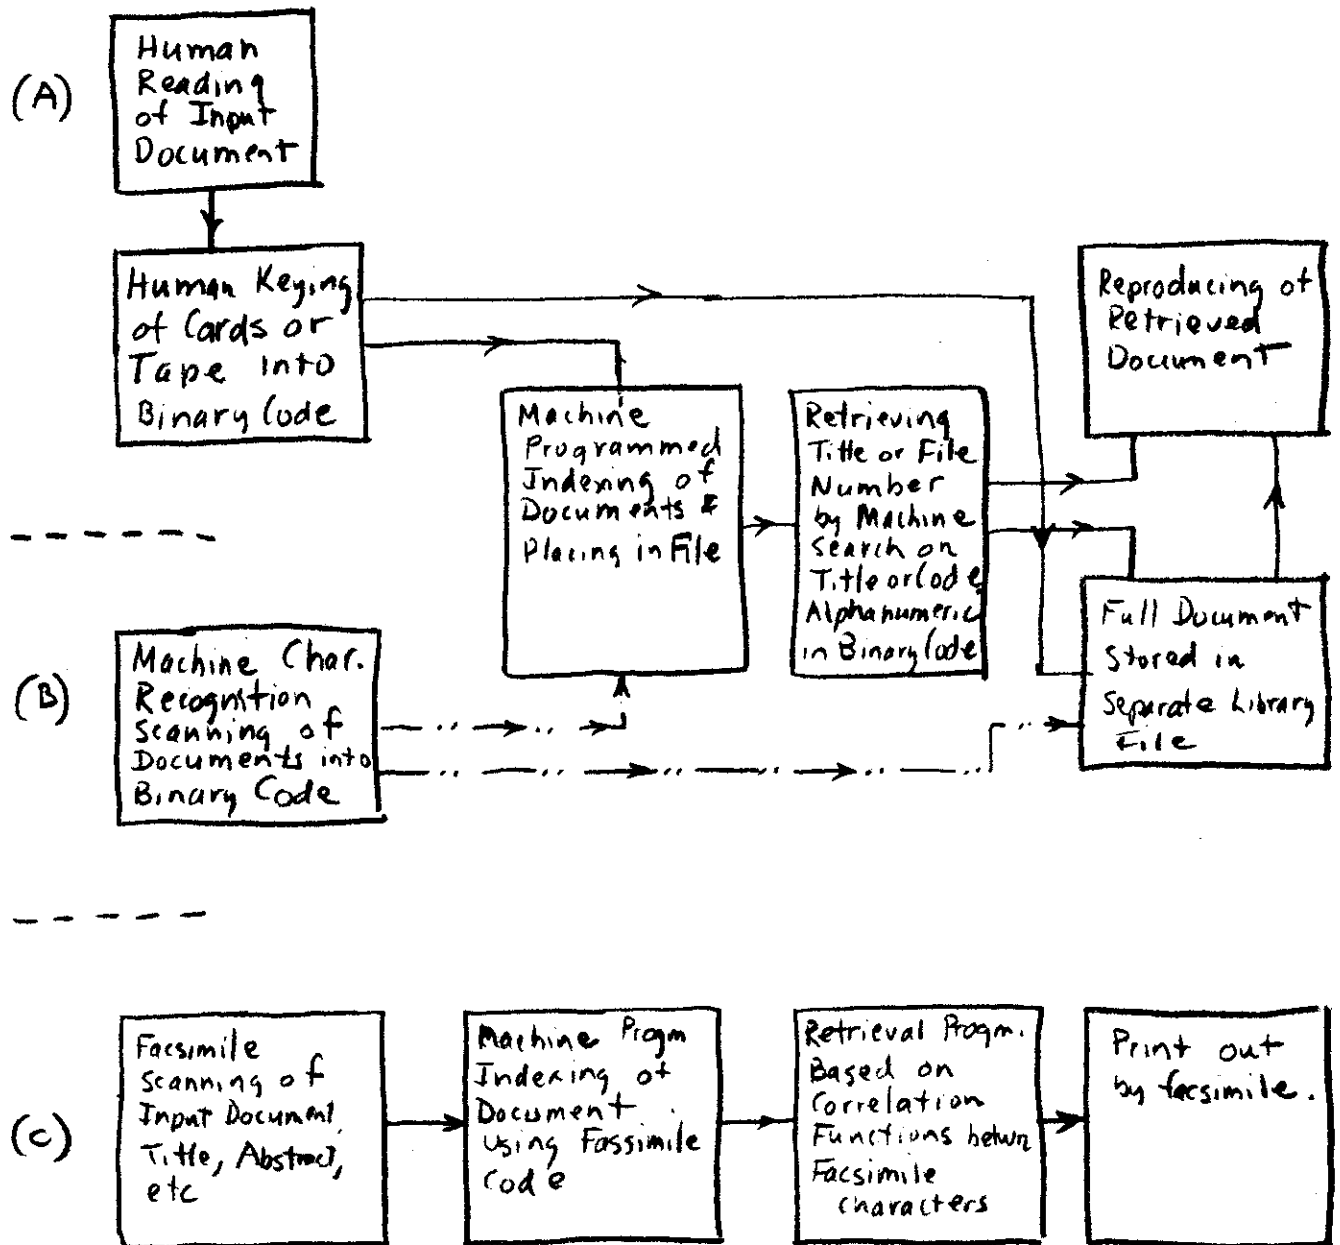 (A)
Human
Reading
of Input
Document
Human Keying
of Cards or
Tape into
Binary Code
Machine
Programmed
Indexing of
Documents &
Placing in File
Retrieving
Title or File
Number
by Machine
Search on
Title or Code
Alphanumeric
in Binary Code
Reproducing of
Retrieved
Document
Full Document
Stored in
Separate Library
File
(B)
Machine Char.
Recognition
Scanning of
Documents into
Binary Code
(C)
Facsimile
Scanning of
Input Document,
Title, Abstract,
etc
Machine Progm
Indexing of
Document
using Fassimile
Code
Retrieval Progm.
Based on
Correlation
Functions betwn
Facsimile
characters
Print out
by facsimile.